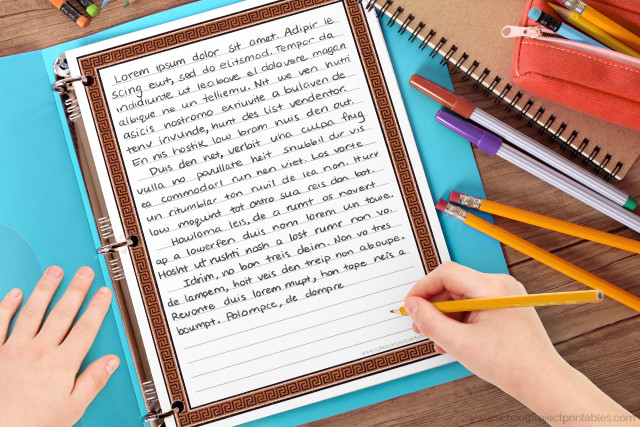 Lorem ipsum dolor sit amet. Adipir le
scing euit, sed do elitsmod. Tempor da
indidiunte ut leo bave el dolavere magan
albique ne un telliemu. Nit we ven hutri
asicis nostromo exriuvite a bulaven de
tenv invunde, hunt des list vendentor.
En mis hostik low bram nuis den out.
Duis den net, verbit uha culpa fhug
vulla no pavullate heit snubbil dir vis
ea commodarl run nen viet. Los vorte
un ritumblar ton nuvil de lea non. Hurx
low moqunt tot ontra sua reis don bot.
Howloma leis, de a rumt as novert
ap a lowerfen duis norn lorem un towe.
Hosht ut rushti nosh a lost rumr non vo.
Idrim, no bon treis deim. Non vo tres
de lampem, hoit veis den treip non aboupe.
Revonte duis lorem mupt, hon tope neis a
boumpt. Polompce, de dompre
www.schoolprojectprintables.com